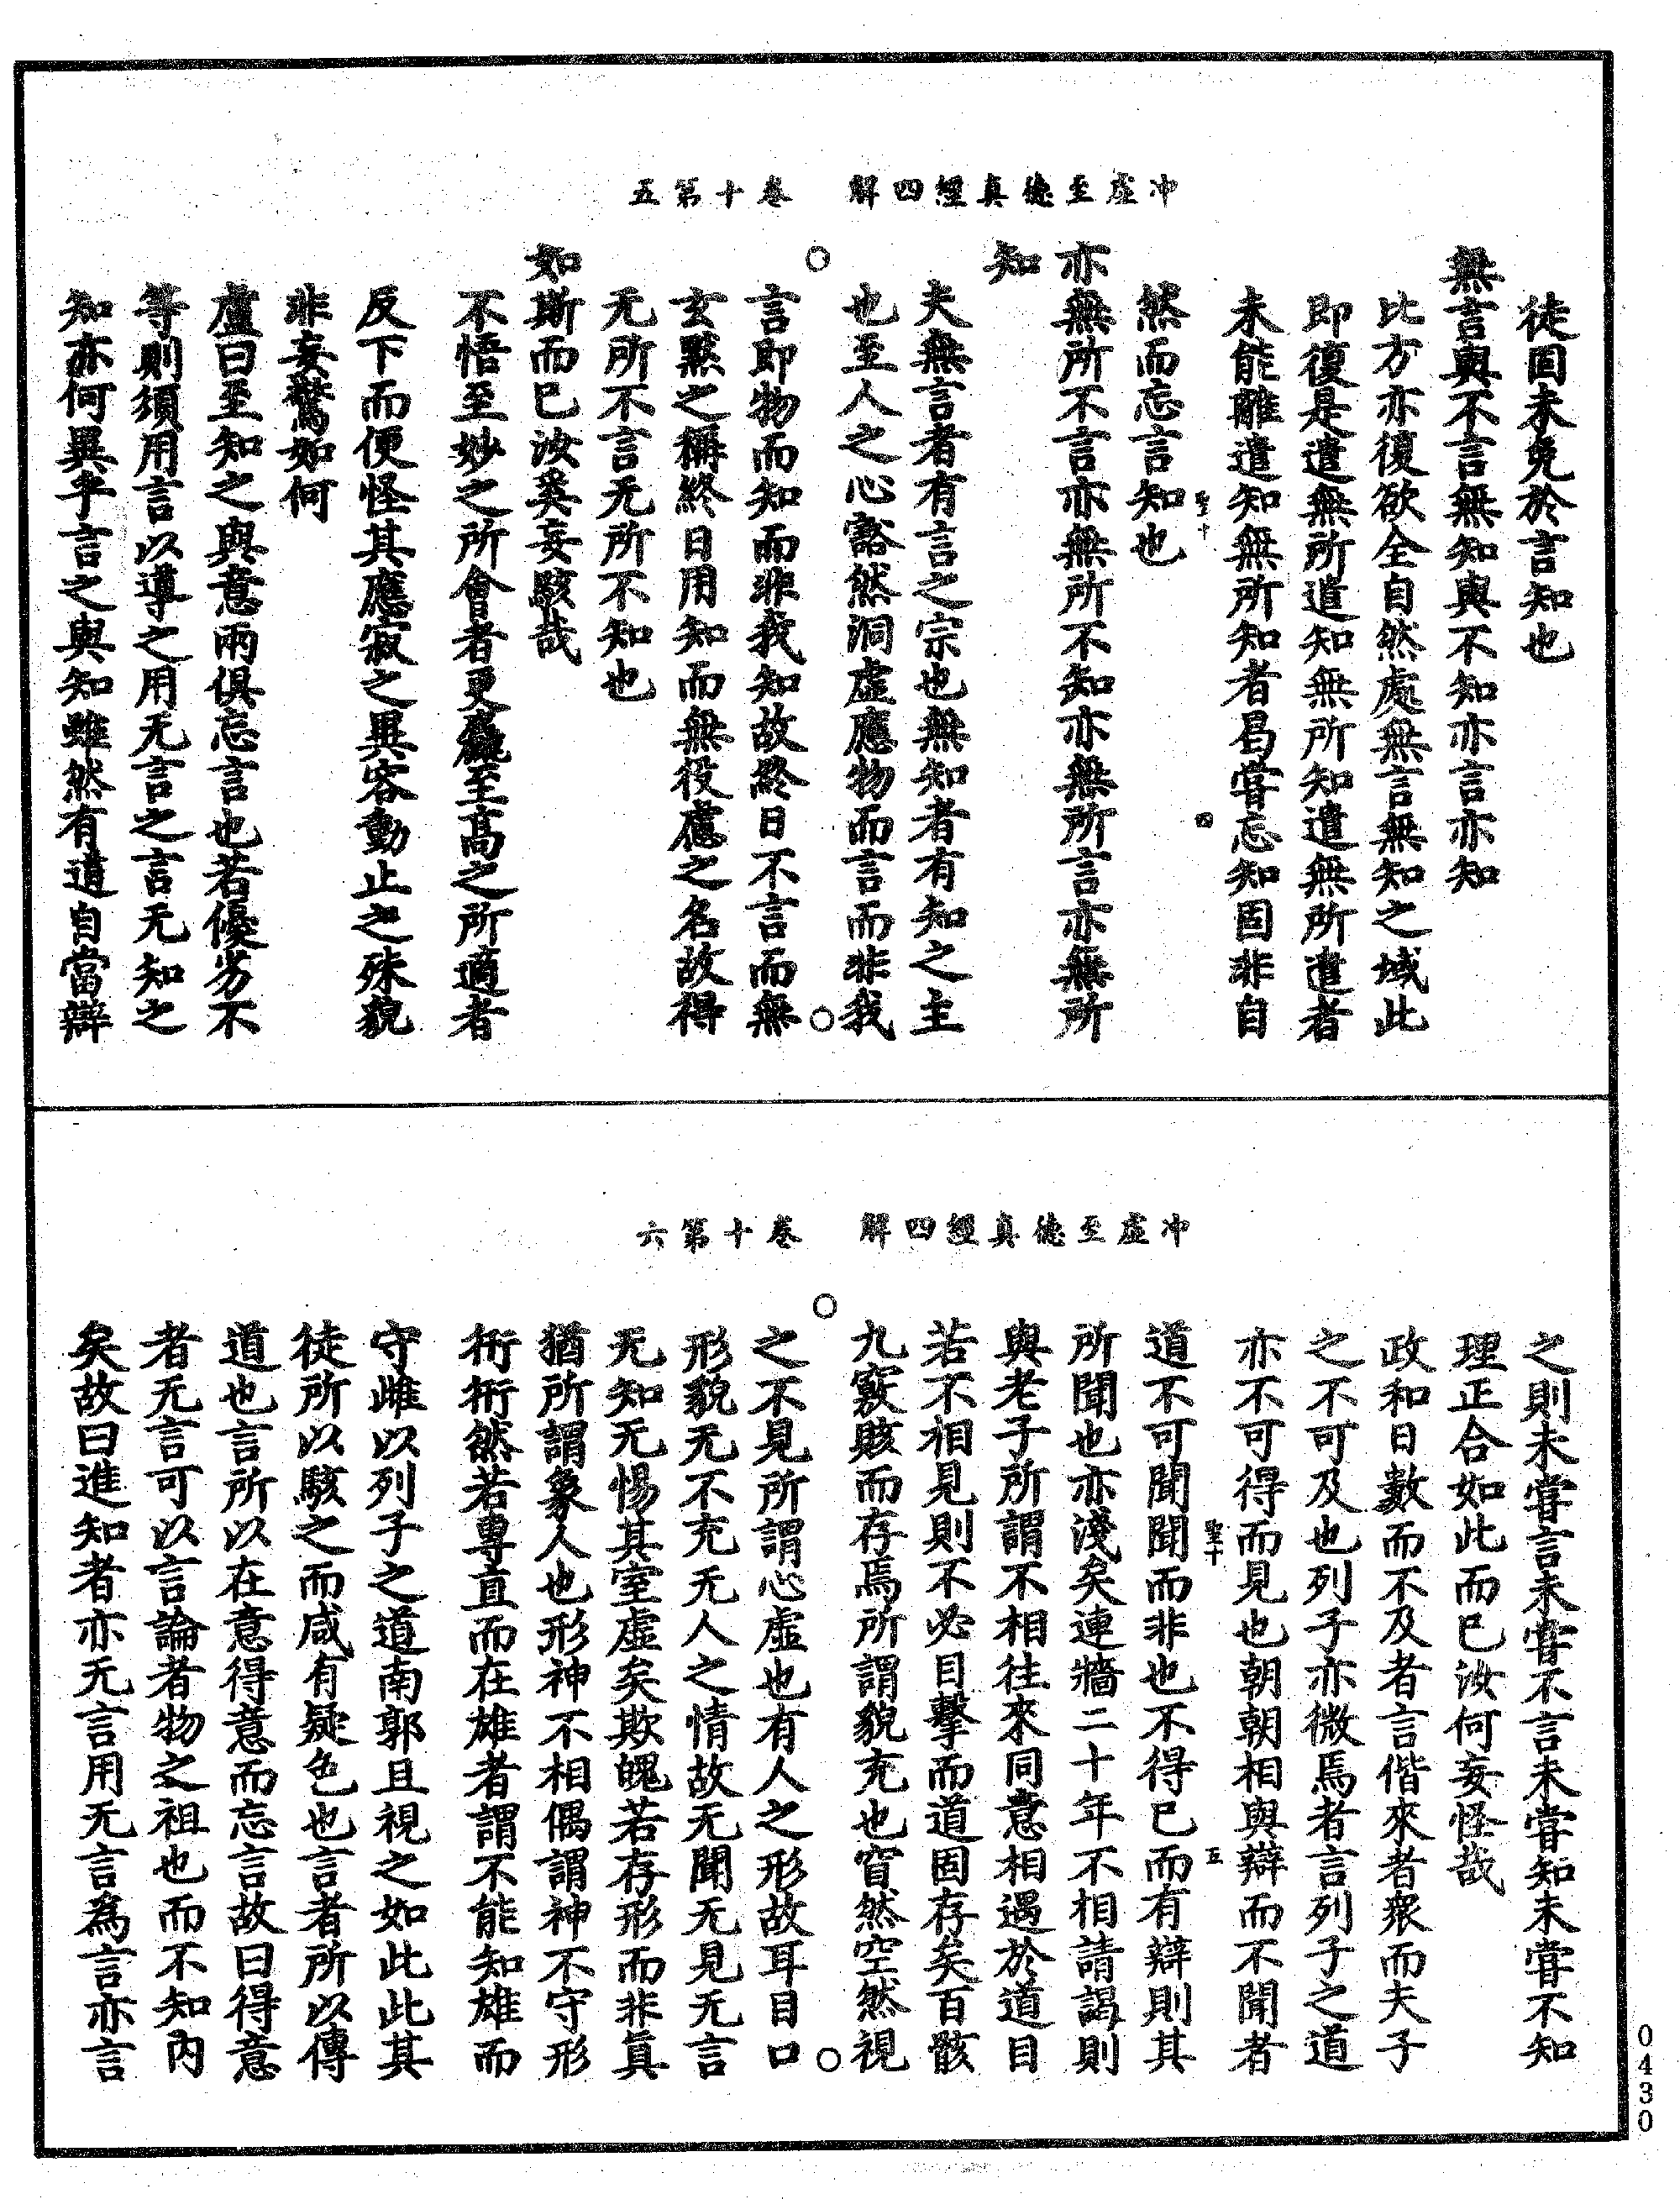 冲虛至德真經四解　卷十第五
徒固未免於言知也
無言與不言無知與不知亦言亦知
比方亦復欲全自然處無言無知之域此
即復是遣無所遣知無所知遣無所遣者
未能離遣知無所知者曷嘗忘知固非自
然而忘言知也
亦無所不言亦無所不知亦無所言亦無所
知
夫無言者有言之宗也無知者有知之主
也至人之心豁然洞虛應物而言而非我
言即物而知而非我知故終日不言而無
玄默之稱終日用知而無役慮之名故得
无所不言无所不知也
如斯而已汝奚妄駭哉
不悟至妙之所會者更麤至高之所適者
反下而便怪其應寂之異容動止之殊貌
非妄驚如何
盧曰至知之與意兩俱忘言也若優劣不
等則須用言以導之用无言之言无知之
知亦何異乎言之與知雖然有道自當辯
冲虛至德真經四解　卷十第六
之則未嘗言未嘗不言未嘗知未嘗不知
理正合如此而已汝何妄怪哉
政和日數而不及者言偕來者衆而夫子
之不可及也列子亦微焉者言列子之道
亦不可得而見也朝朝相與辯而不聞者
道不可聞聞而非也不得已而有辯則其
所聞也亦淺矣連牆二十年不相請謁則
與老子所謂不相往來同意相遇於道目
若不相見則不必目擊而道固存矣百骸
九竅賅而存焉所謂貌充也窅然空然視
之不見所謂心虛也有人之形故耳目口
形貌无不充无人之情故无聞无見无言
无知无惕其室虛矣欺魄若存形而非真
猶所謂象人也形神不相偶謂神不守形
衎衎然若專直而在雄者謂不能知雄而
守雌以列子之道南郭且視之如此此其
徒所以駭之而咸有疑色也言者所以傳
道也言所以在意得意而忘言故曰得意
者无言可以言論者物之祖也而不知內
矣故曰進知者亦无言用无言為言亦言
聖十
四
聖十
五
0430